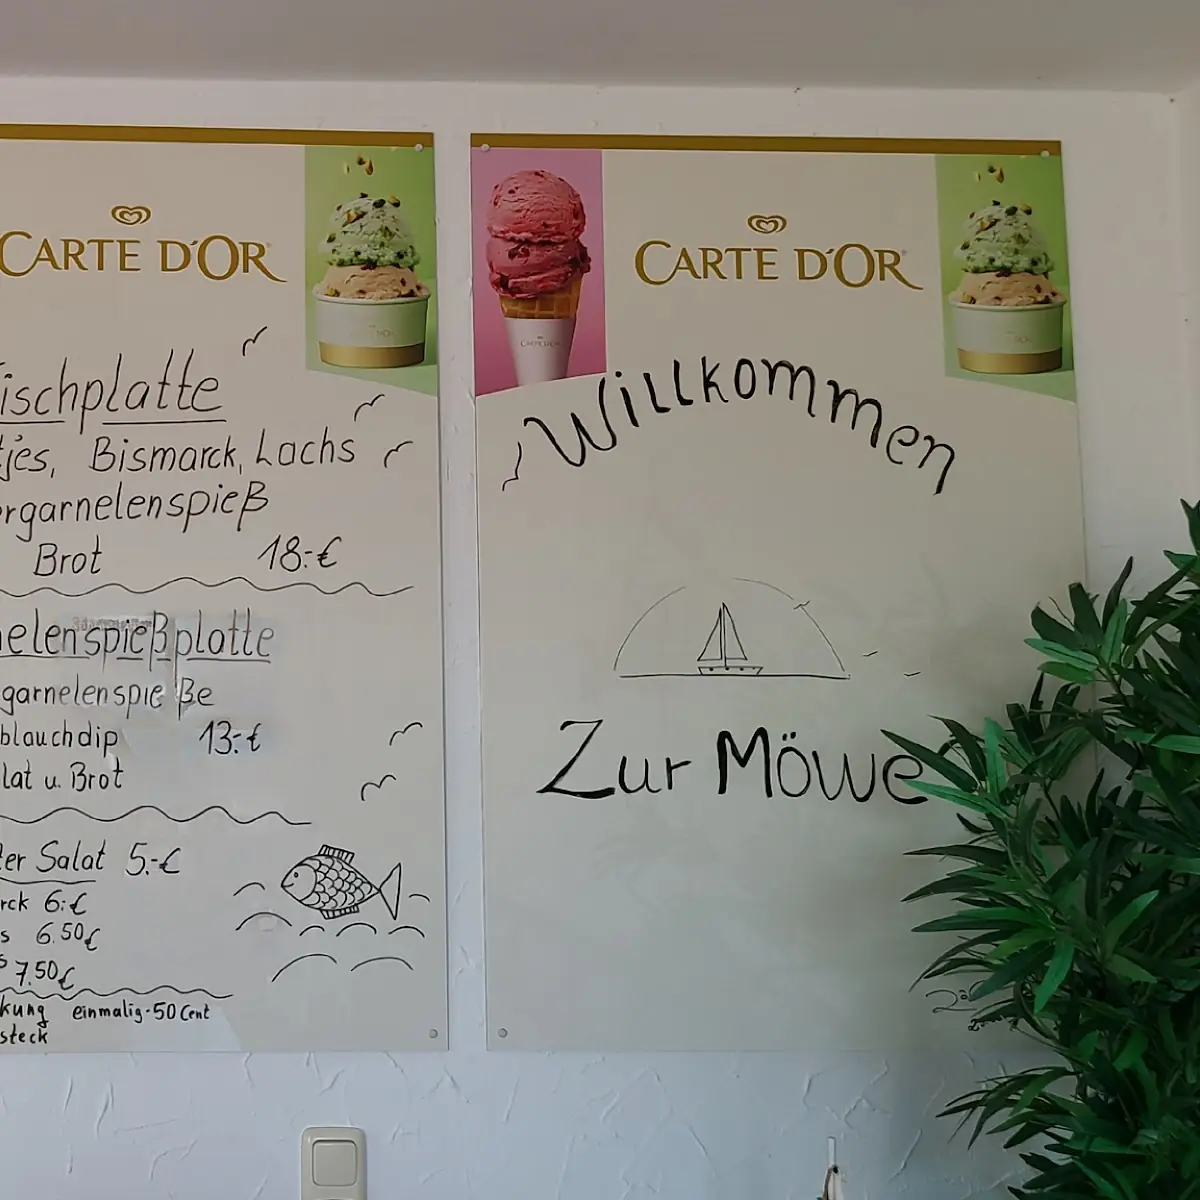 CARTE D'OR
ischplatte
tjes, Bismarck, Lachs
ergarnelenspieß
Brot 18:-€
nelenspießplatte
garnelenspieße
blauchdip 13:-€
lat u. Brot
ter Salat 5.-€
rck 6:€
s 6.50€
s 7.50€
kung einmalig-50 Cent
steck
CARTE D'OR
CARTE D'OR
Willkommen
Zur Möwe